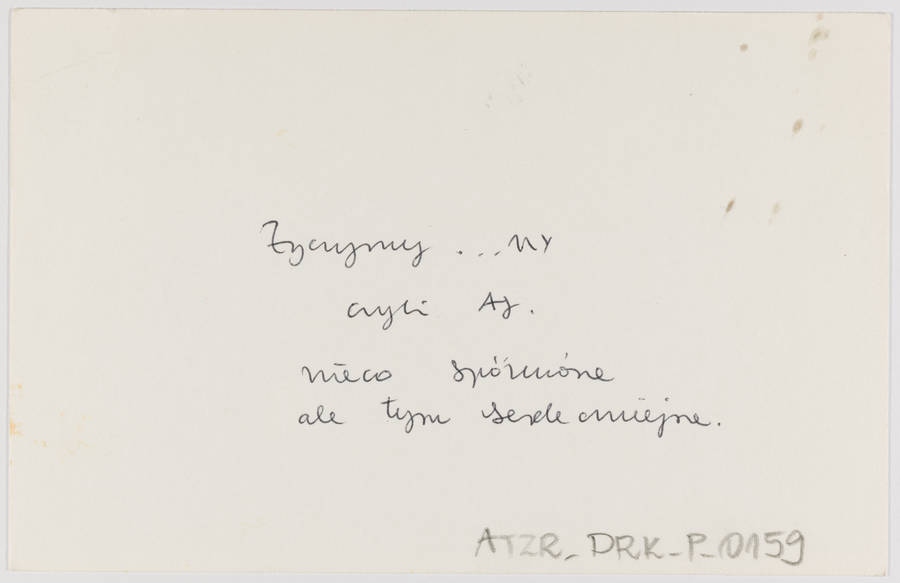 Życzymy ... my
czyli AJ.
nieco spóźnione
ale tym serdeczniejsze.
ATZR_DRK_P_0159